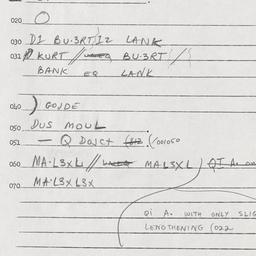 020 O
030 DI BU·3RT/IZ LANK
031 KURT // BU·3RT /
BANK EQ LANK
040 ) GOJDE
050 DUS MOUL .
051 — Q DOJCT (001050
060 MA·L3XL // MAL3XL ) QI A.
070 MA·L3XL3X
QI A. WITH ONLY SLIG
LENGTHENING (022